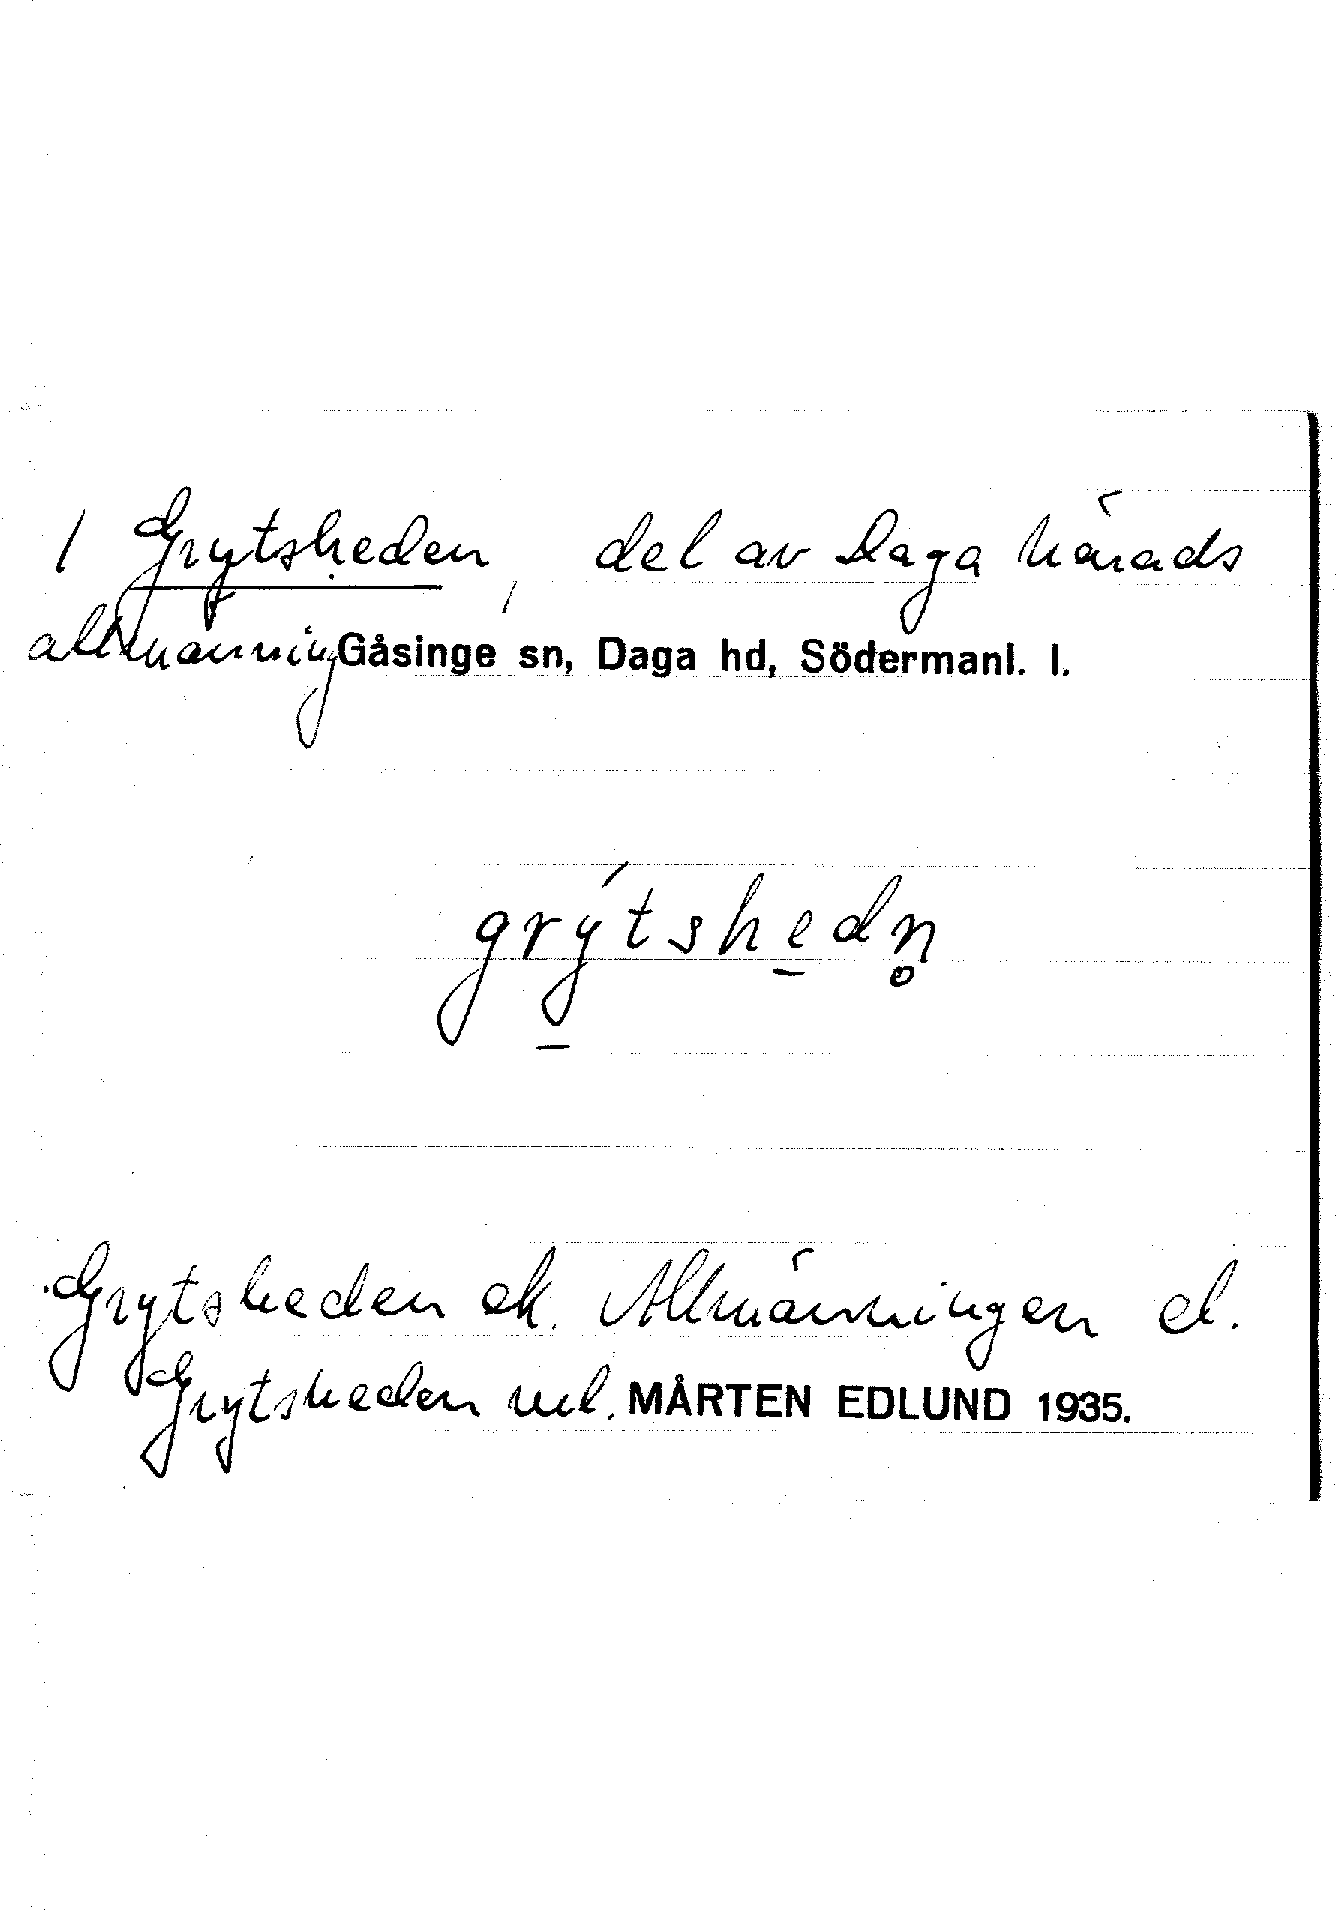 / Grytsheden, del av Daga härads
allmänning Gåsinge sn, Daga hd, Södermanl. l.
grýtshedn̥
Grytsheden ek. Allmänningen el.
Grytsheden uel. MÅRTEN EDLUND 1935.